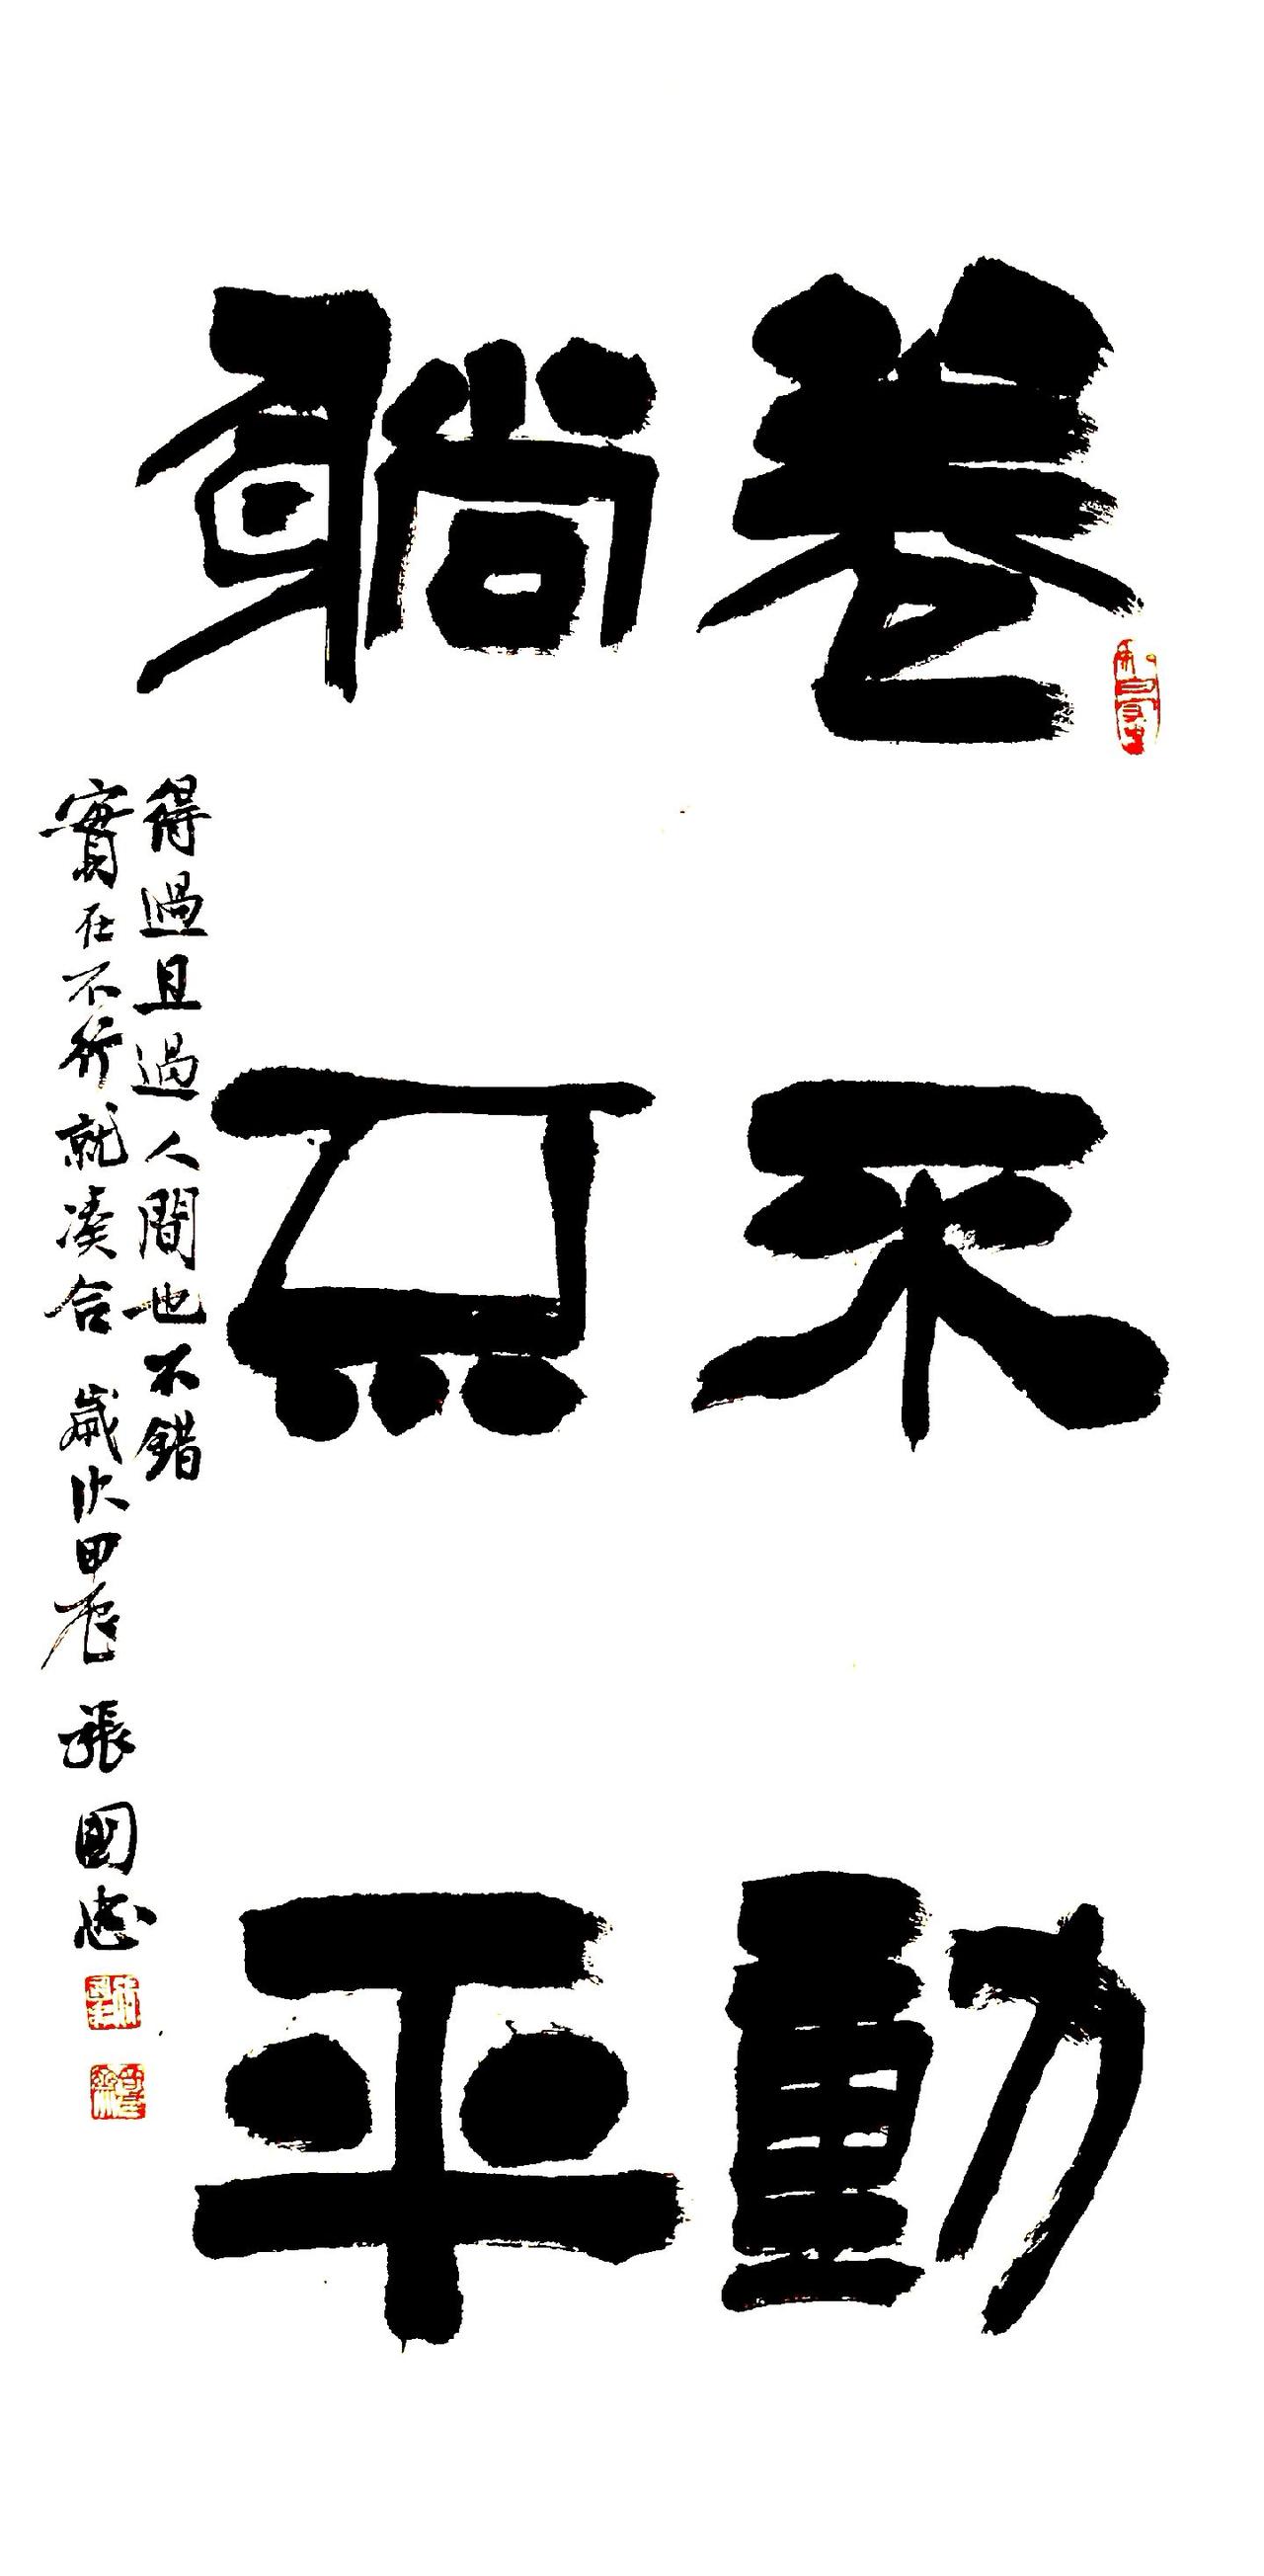 卷不動
躺平
得過且過人間也不錯
實在不行就凑合 歲次甲辰 張國忠